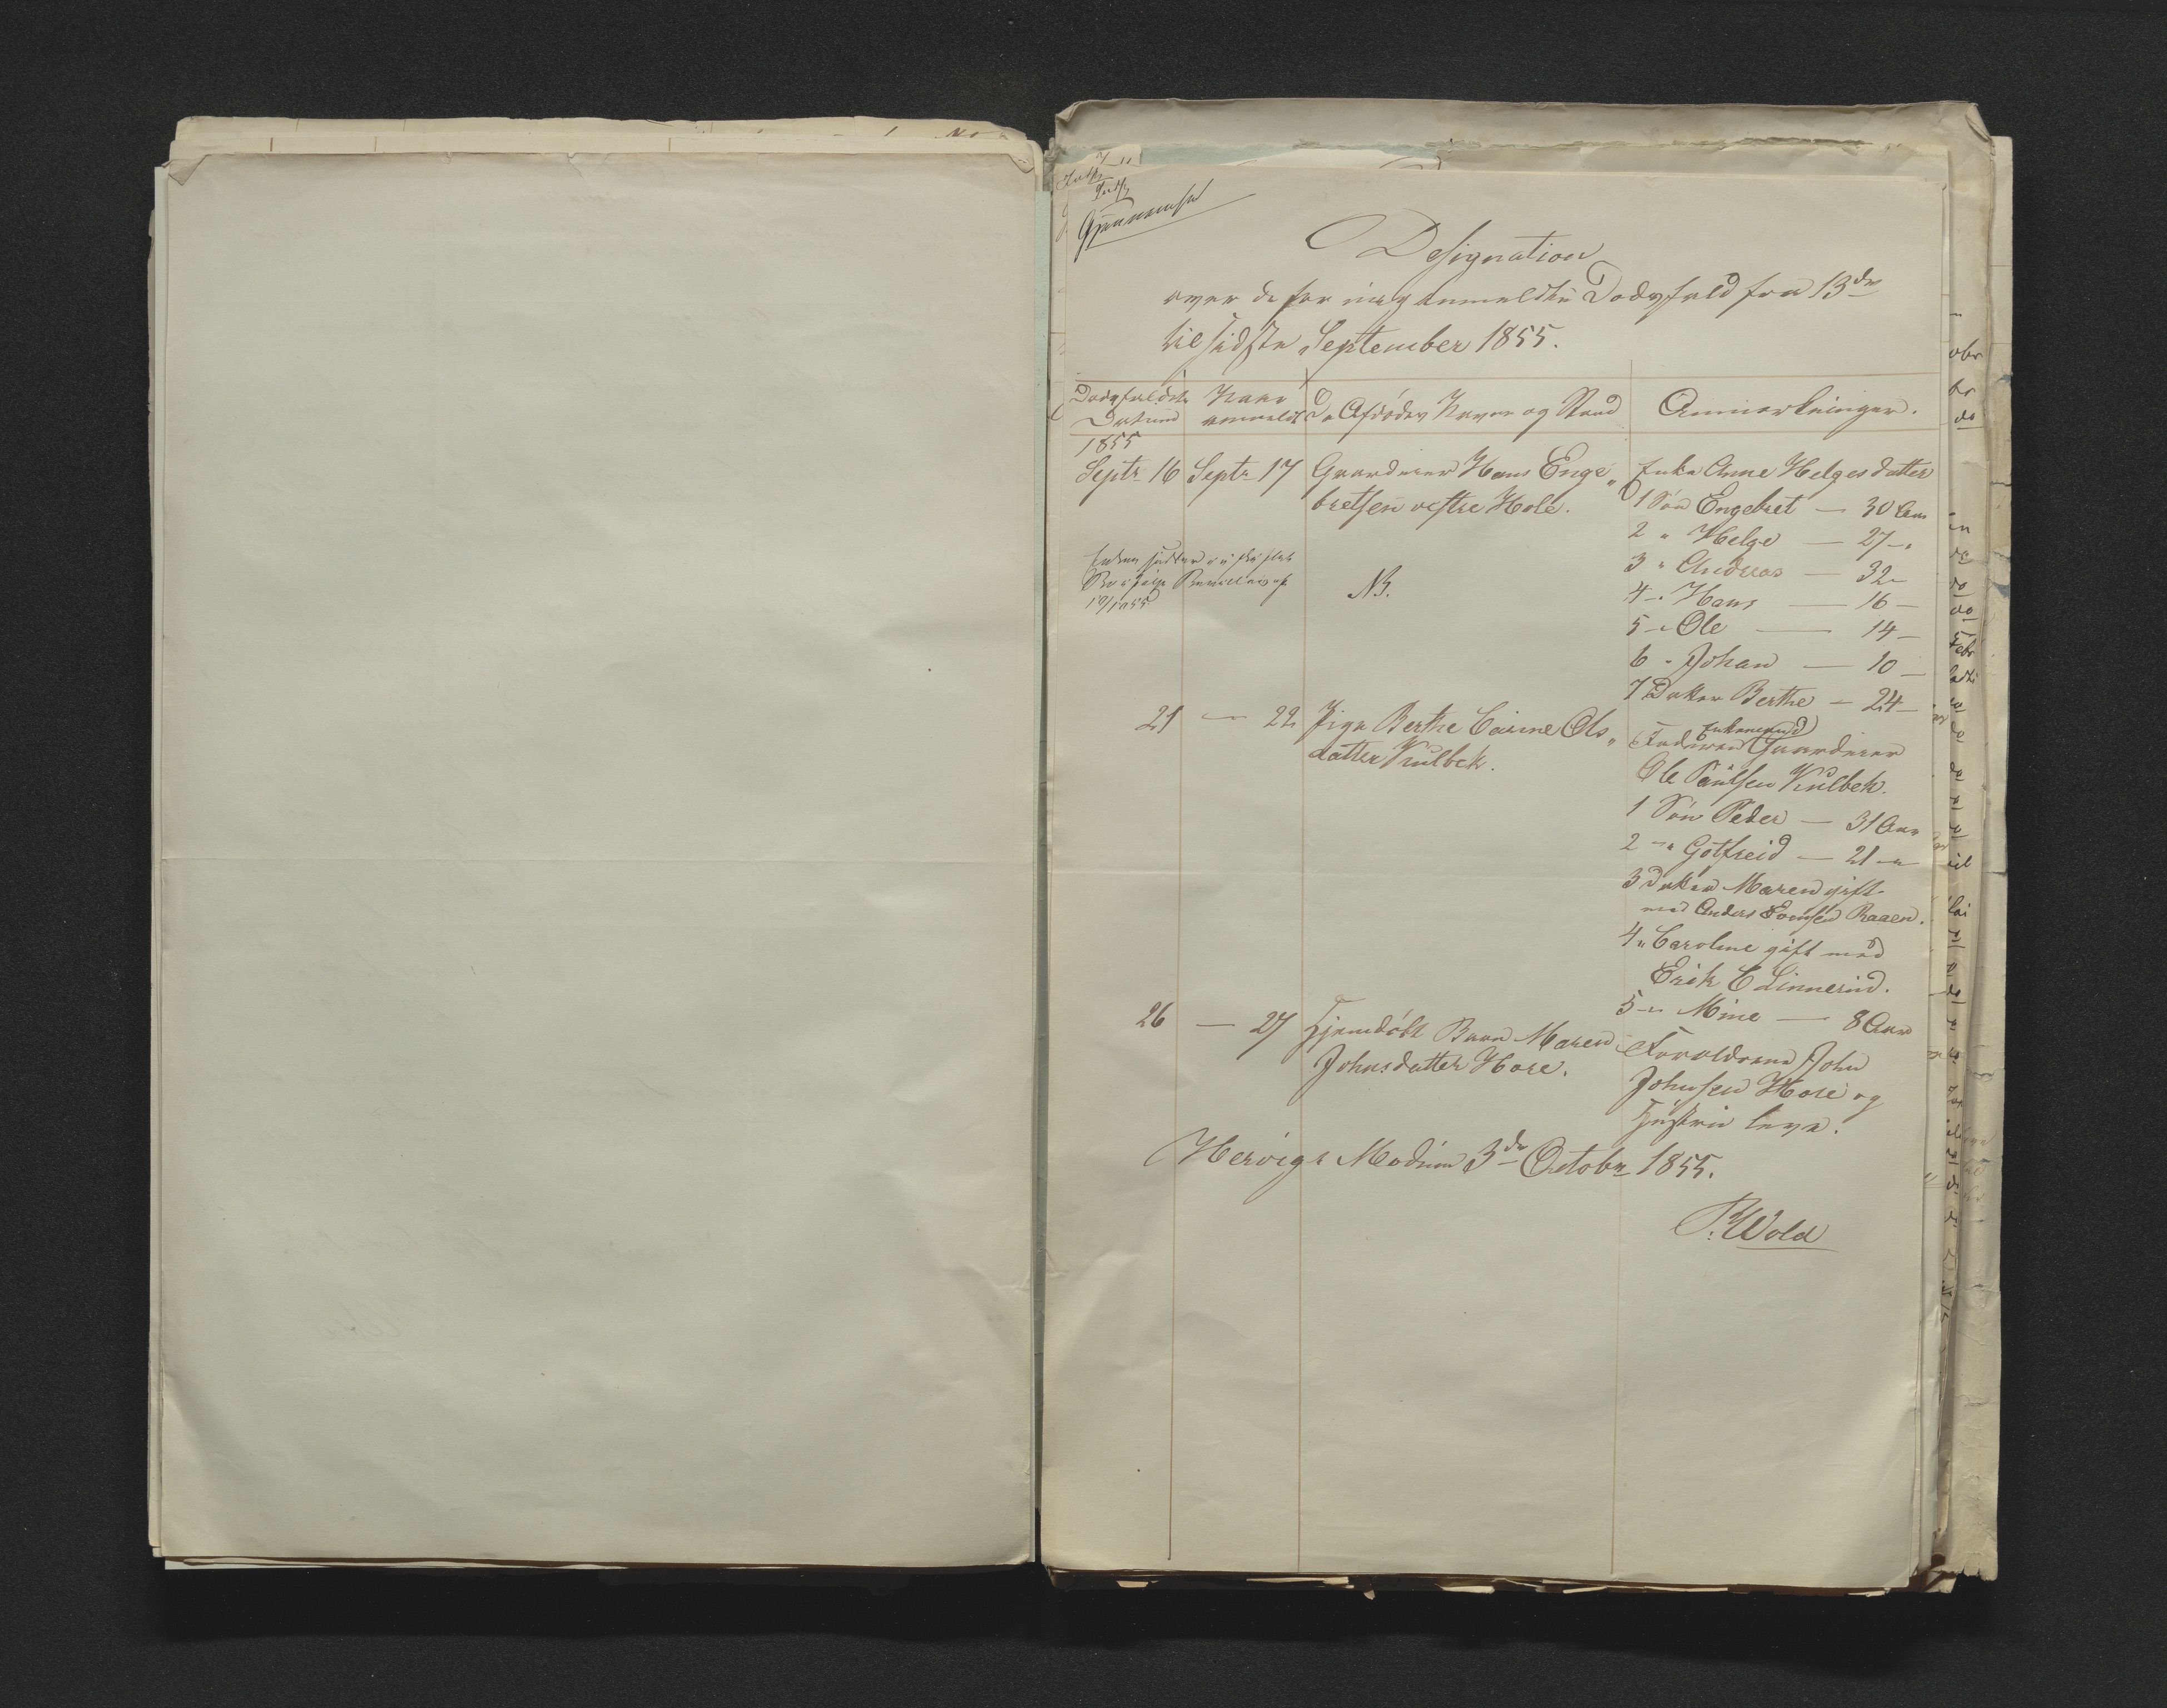 Gjennemseet
Designation
over de for mig anmeldte Dødsfald fra 13de
til sidste September 1855.
Dødsfaldets Datum
Naar anmeldt
De Afdødes Navne og Stand
Anmærkninger.
1855
Septr 16 Septr 17 Gaardmand Hans Enge„
bretsen vestre Hole.
Enke Anne Helgesdatter
1 Søn Engebret — 30 Aar
2 " Helge — 27 — "
3 " Andreas — 32 —
4 - " Hans — 16 —
5 - " Ole — 14 —
6 " Johan — 10 —
7 Datter Berthe — 24 —
Enken sidder i uskiftet
Bo ifølge Bevilling af
10/1855
NB.
21 — 22 Pige Berthe Carine Ols„
datter Kulbek.
Enkemand
Faderen Gaardmand
Ole Paulsen Kulbek.
1 Søn Peder — 31 Aar
2 - " Gotfreid — 21 - "
3 Datter Maren gift
med Anders Raaen.
4 " Caroline gift med
Erik C Linnerud.
5 - " Mine — 8 Aar
26 — 27 Hjemdøbt Barn Maren
Johnsdatter Hore.
Forældrene John
Johnsen Hore og
Hustru leve.
Hervige Modum 3de Octobr 1855.
P. Wold